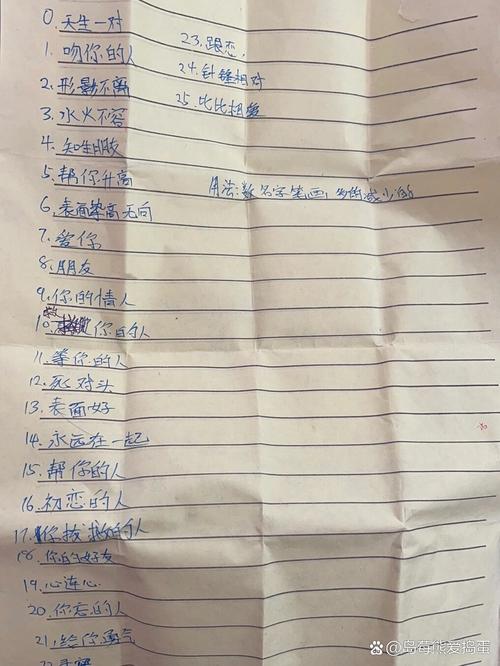 0. 天生一对
1. 吻你的人
2. 形影不离
3. 水火不容
4. 知生朋友
5. 帮你升高
6. 表面
7. 爱你
8. 朋友
9. 你的情人
10. 你的人
11. 等你的人
12. 死对头
13. 表面好
14. 永远在一起
15. 帮你的人
16. 初恋的人
17. 你拔救的人
18. 你的好友
19. 心连心
20. 你恋的人
21. 给你勇气
22.
23. 跟恋.
24. 针锋相对
25. 比比相爱
用法:数名字笔画, 多的减少的
百度 @岛莓熊爱捣蛋